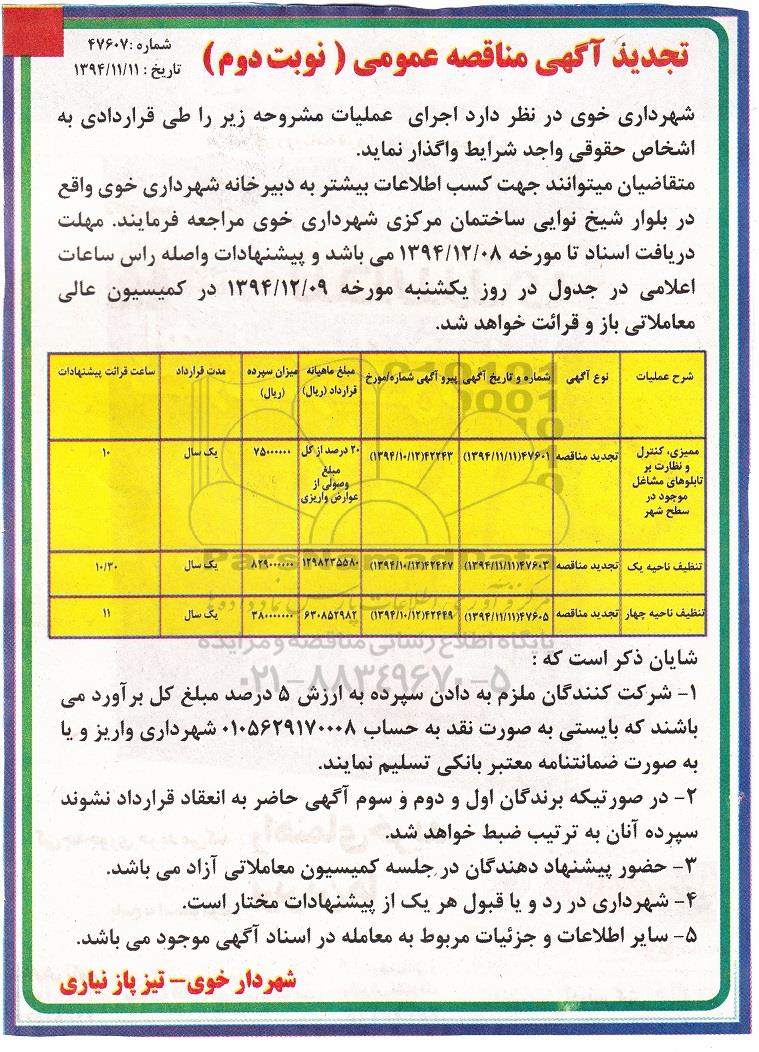 تجدید آگهی مناقصه عمومی ( نوبت دوم )
شماره :۴۷۶۰۷
تاریخ : ۱۳۹۴/۱۱/۱۱
شهرداری خوی در نظر دارد اجرای عملیات مشروحه زیر را طی قراردادی به
اشخاص حقوقی واجد شرایط واگذار نماید.
متقاضیان میتوانند جهت کسب اطلاعات بیشتر به دبیرخانه شهرداری خوی واقع
در بلوار شیخ نوایی ساختمان مرکزی شهرداری خوی مراجعه فرمایند. مهلت
دریافت اسناد تا مورخه ۱۳۹۴/۱۲/۰۸ می باشد و پیشنهادات واصله راس ساعات
اعلامی در جدول در روز یکشنبه مورخه ۱۳۹۴/۱۲/۰۹ در کمیسیون عالی
معاملاتی باز و قرائت خواهد شد.
شرح عملیات نوع آگهی شماره و تاریخ آگهی پیرو آگهی شماره/مورخ مبلغ ماهیانه قرارداد (ریال) میزان سپرده (ریال) مدت قرارداد ساعت قرائت پیشنهادات
ممیزی، کنترل و نظارت بر تابلوهای مشاغل موجود در سطح شهر تجدید مناقصه ۴۷۶۰۱(۱۳۹۴/۱۱/۱۱) ۴۲۲۴۳(۱۳۹۴/۱۰/۱۲) ۲۰ درصد از کل مبلغ وصولی از عوارض واریزی ۷۵۰۰۰۰۰۰ یک سال ۱۰
تنظیف ناحیه یک تجدید مناقصه ۴۷۶۰۳(۱۳۹۴/۱۱/۱۱) ۴۲۴۴۷(۱۳۹۴/۱۰/۱۲) ۱۲۹۸۲۳۵۵۸۰ ۸۲۹۰۰۰۰۰۰ یک سال ۱۰/۳۰
تنظیف ناحیه چهار تجدید مناقصه ۴۷۶۰۵(۱۳۹۴/۱۱/۱۱) ۴۲۴۴۹(۱۳۹۴/۱۰/۱۲) ۶۳۰۸۵۲۹۸۲ ۳۸۰۰۰۰۰۰۰ یک سال ۱۱
ParsNamadData
مرکز فرآوری اطلاعات پارس نماد داده ها
پایگاه اطلاع رسانی مناقصه و مزایده
۰۲۱-۸۸۳۴۹۶۷۰-۵
شایان ذکر است که :
۱- شرکت کنندگان ملزم به دادن سپرده به ارزش ۵ درصد مبلغ کل برآورد می
باشند که بایستی به صورت نقد به حساب ۰۱۰۵۶۲۹۱۷۰۰۰۸ شهرداری واریز و یا
به صورت ضمانتنامه معتبر بانکی تسلیم نمایند.
۲- در صورتیکه برندگان اول و دوم و سوم آگهی حاضر به انعقاد قرارداد نشوند
سپرده آنان به ترتیب ضبط خواهد شد.
۳- حضور پیشنهاد دهندگان در جلسه کمیسیون معاملاتی آزاد می باشد.
۴- شهرداری در رد و یا قبول هر یک از پیشنهادات مختار است.
۵- سایر اطلاعات و جزئیات مربوط به معامله در اسناد آگهی موجود می باشد.
شهردار خوی- تیز پاز نیاری